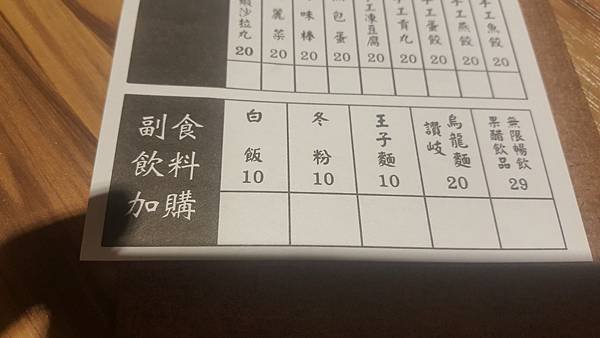 沙拉丸 麗菜 味棒 包蛋 工凍豆腐 工貢丸 工蛋餃 工燕餃 工魚餃
20 20 20 20 20 20 20 20 20
副食飲料加購
白飯 冬粉 王子麵 讚岐烏龍麵 無限暢飲果醋飲品
10 10 10 20 29